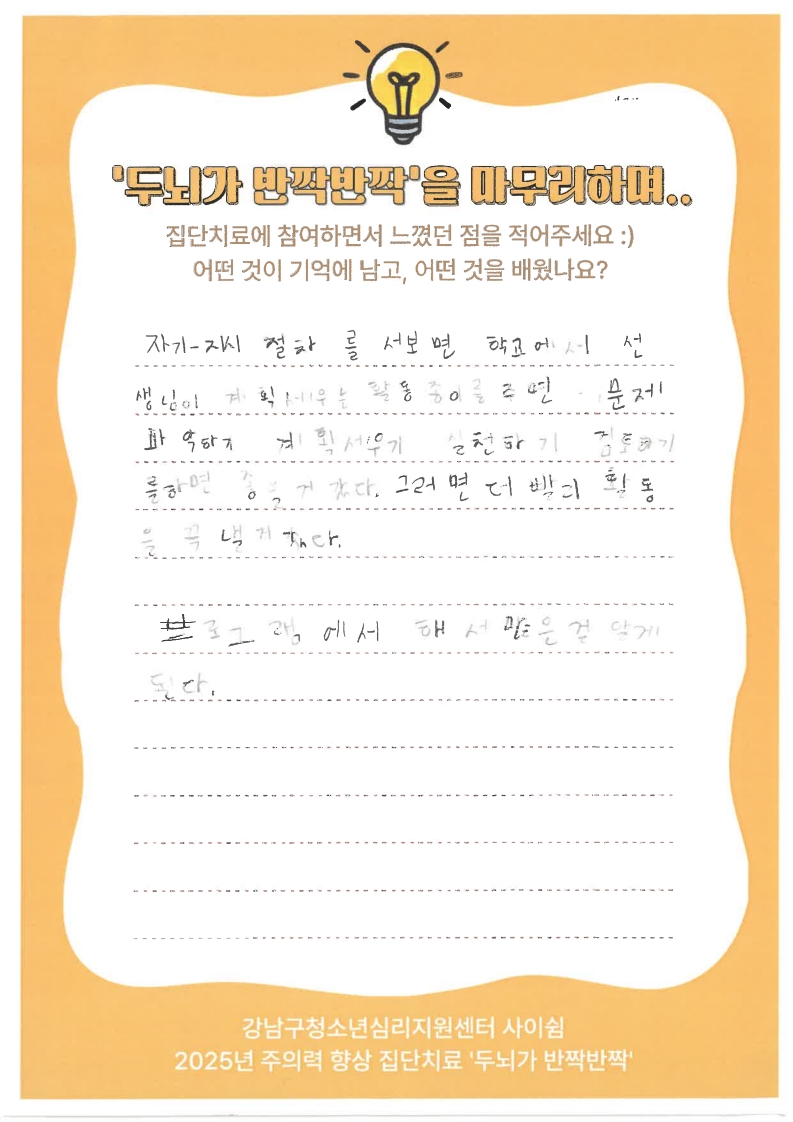 '두뇌가 반짝반짝'을 마무리하며..
집단치료에 참여하면서 느꼈던 점을 적어주세요 :)
어떤 것이 기억에 남고, 어떤 것을 배웠나요?
자기-지시 절차 를 서보면 학교에서 선
생님이 계획세우는 활동 종이를 주면 문제
파악하기 계획세우기 실천하기 검토하기
를하면 좋을 거 같다. 그러면 더 빨리 활동
을 꼭 낼거 같다.
프로그램에서 해서 많은걸 알게
된다.
강남구청소년심리지원센터 사이쉼
2025년 주의력 향상 집단치료 '두뇌가 반짝반짝'